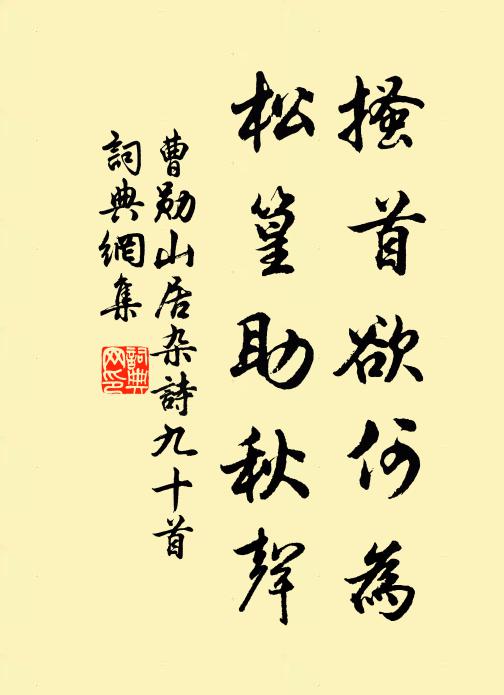 搔首欲何為
松篁助秋聲
曹勛山居杂詩九十首
詞典網集
詞典
网印